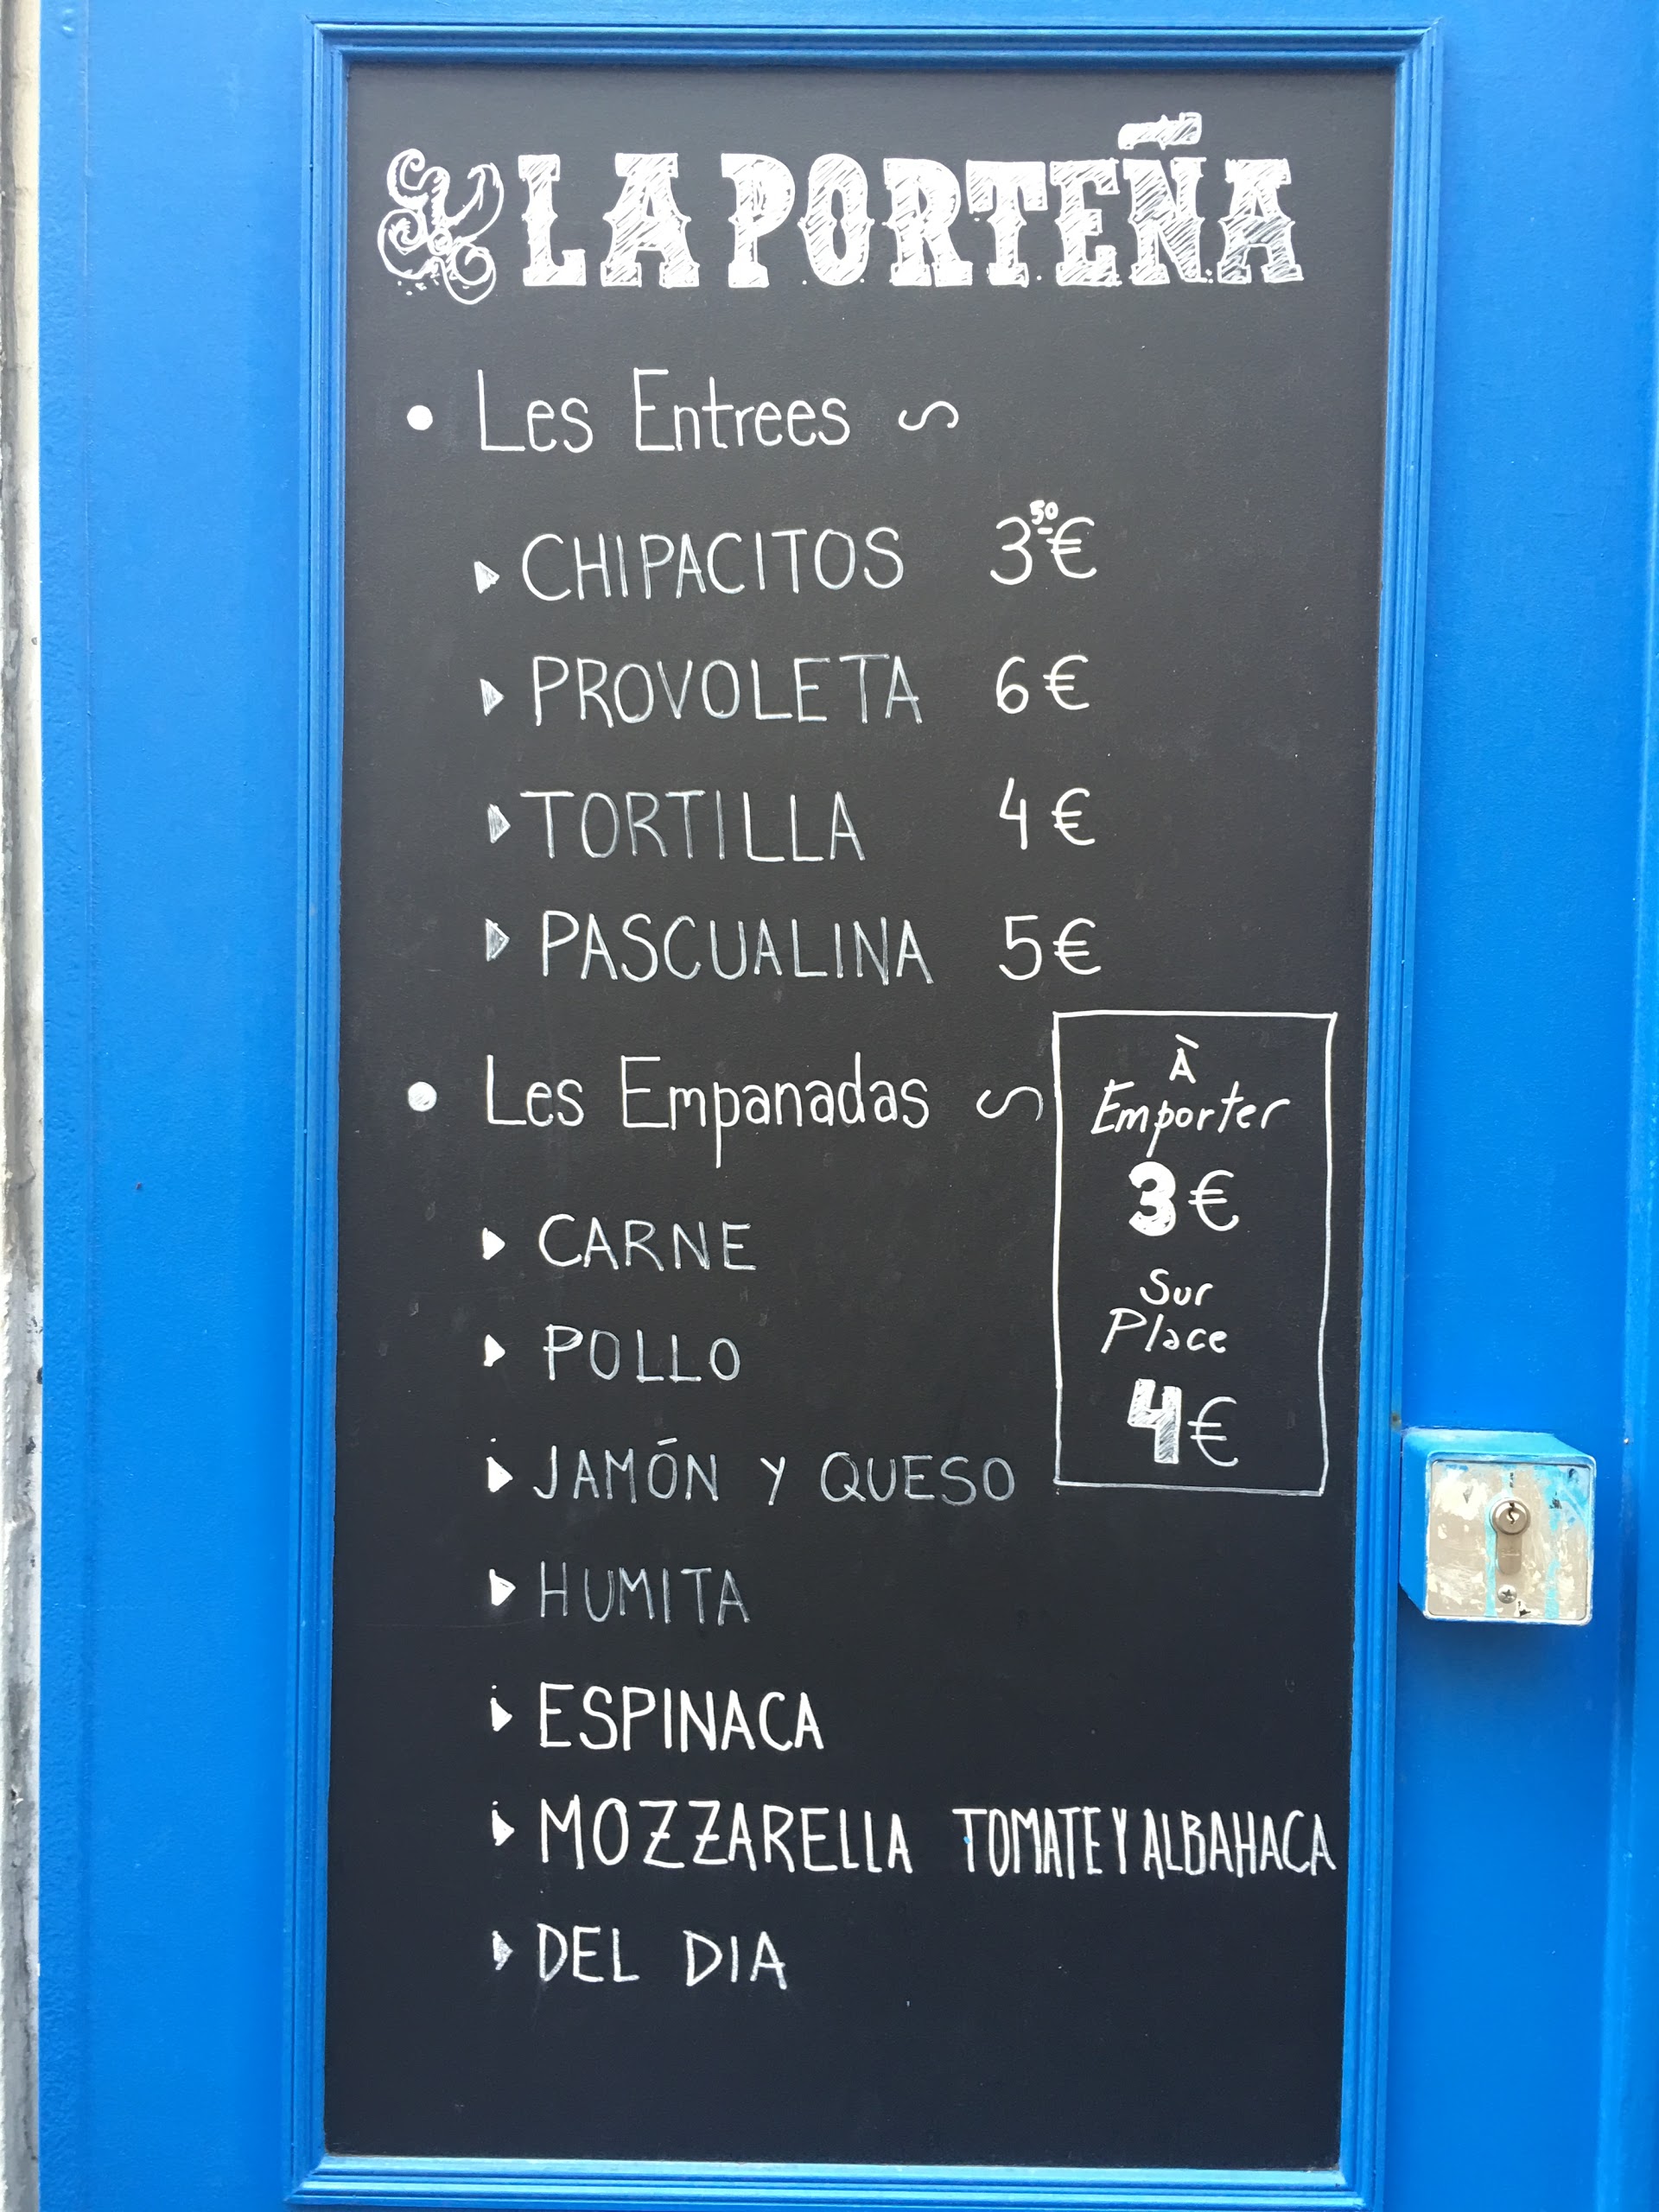 LA PORTEÑA
• Les Entrees
CHIPACITOS 3⁵⁰€
PROVOLETA 6€
TORTILLA 4€
PASCUALINA 5€
• Les Empanadas
À
Emporter
3€
Sur
Place
4€
CARNE
POLLO
JAMÓN Y QUESO
HUMITA
ESPINACA
MOZZARELLA TOMATE Y ALBAHACA
DEL DIA